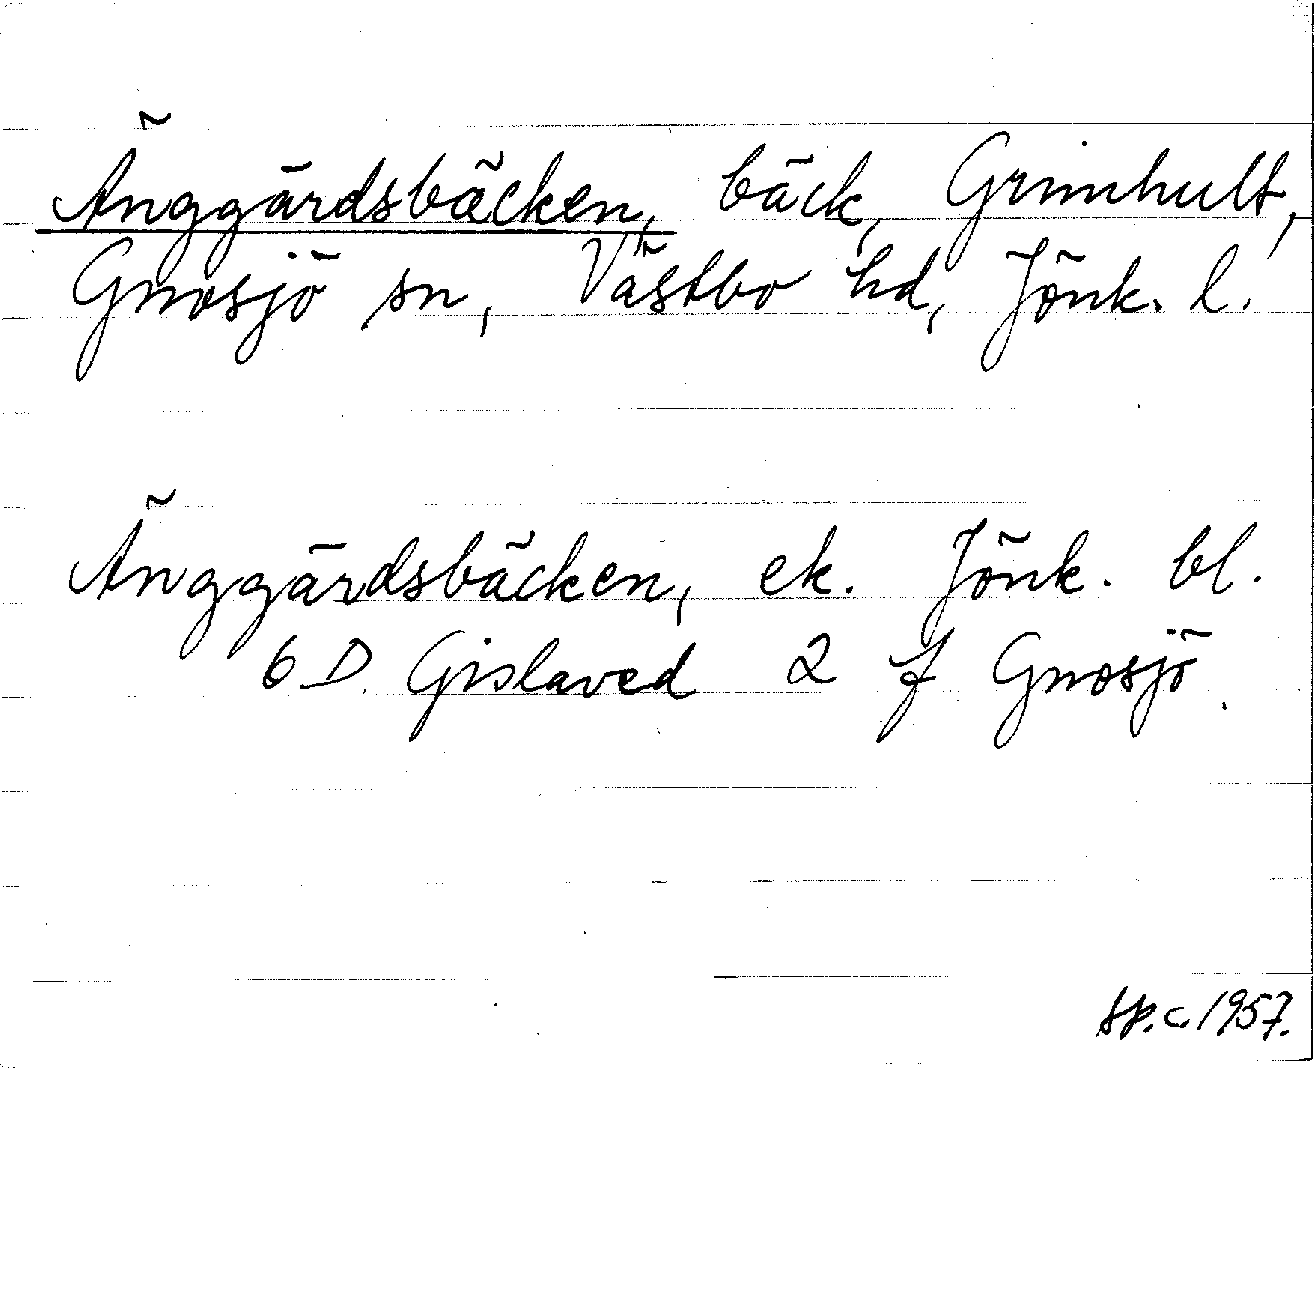 Änggårdsbäcken, bäck, Grimhult,
Gnosjö sn, Västbo hd, Jönk. l.
Änggårdsbäcken, ek. Jönk. bl.
6 D Gislaved 2 f Gnosjö.
sp.c 1957.